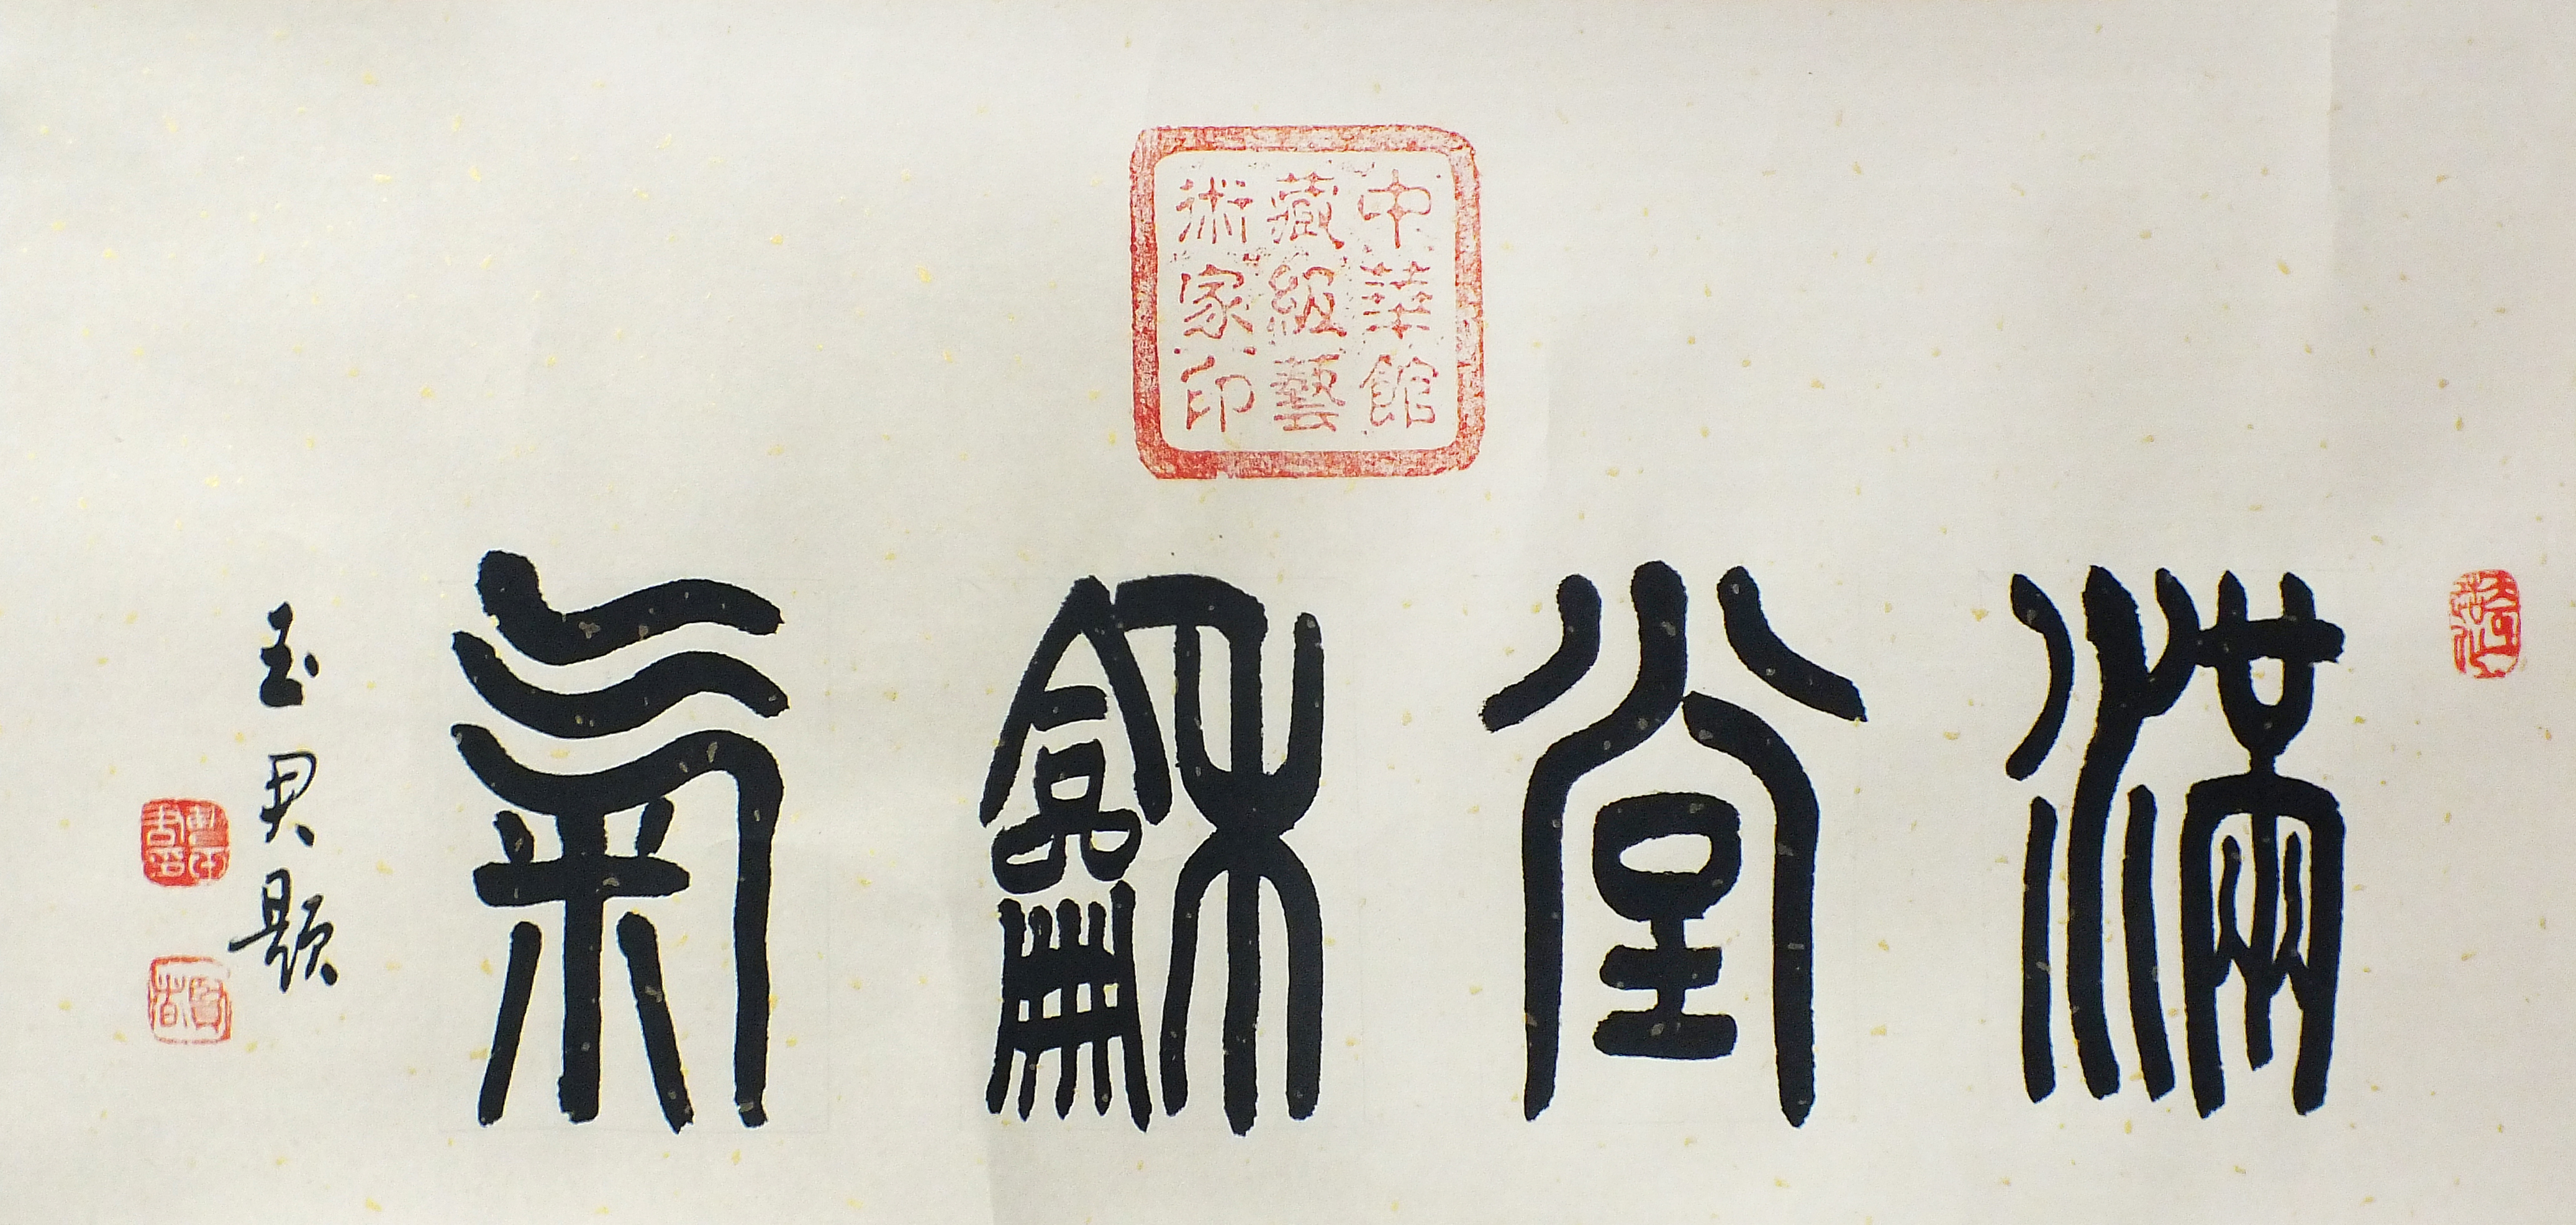 中華館
藏級藝
術家印
滿堂龢氣
玉君題